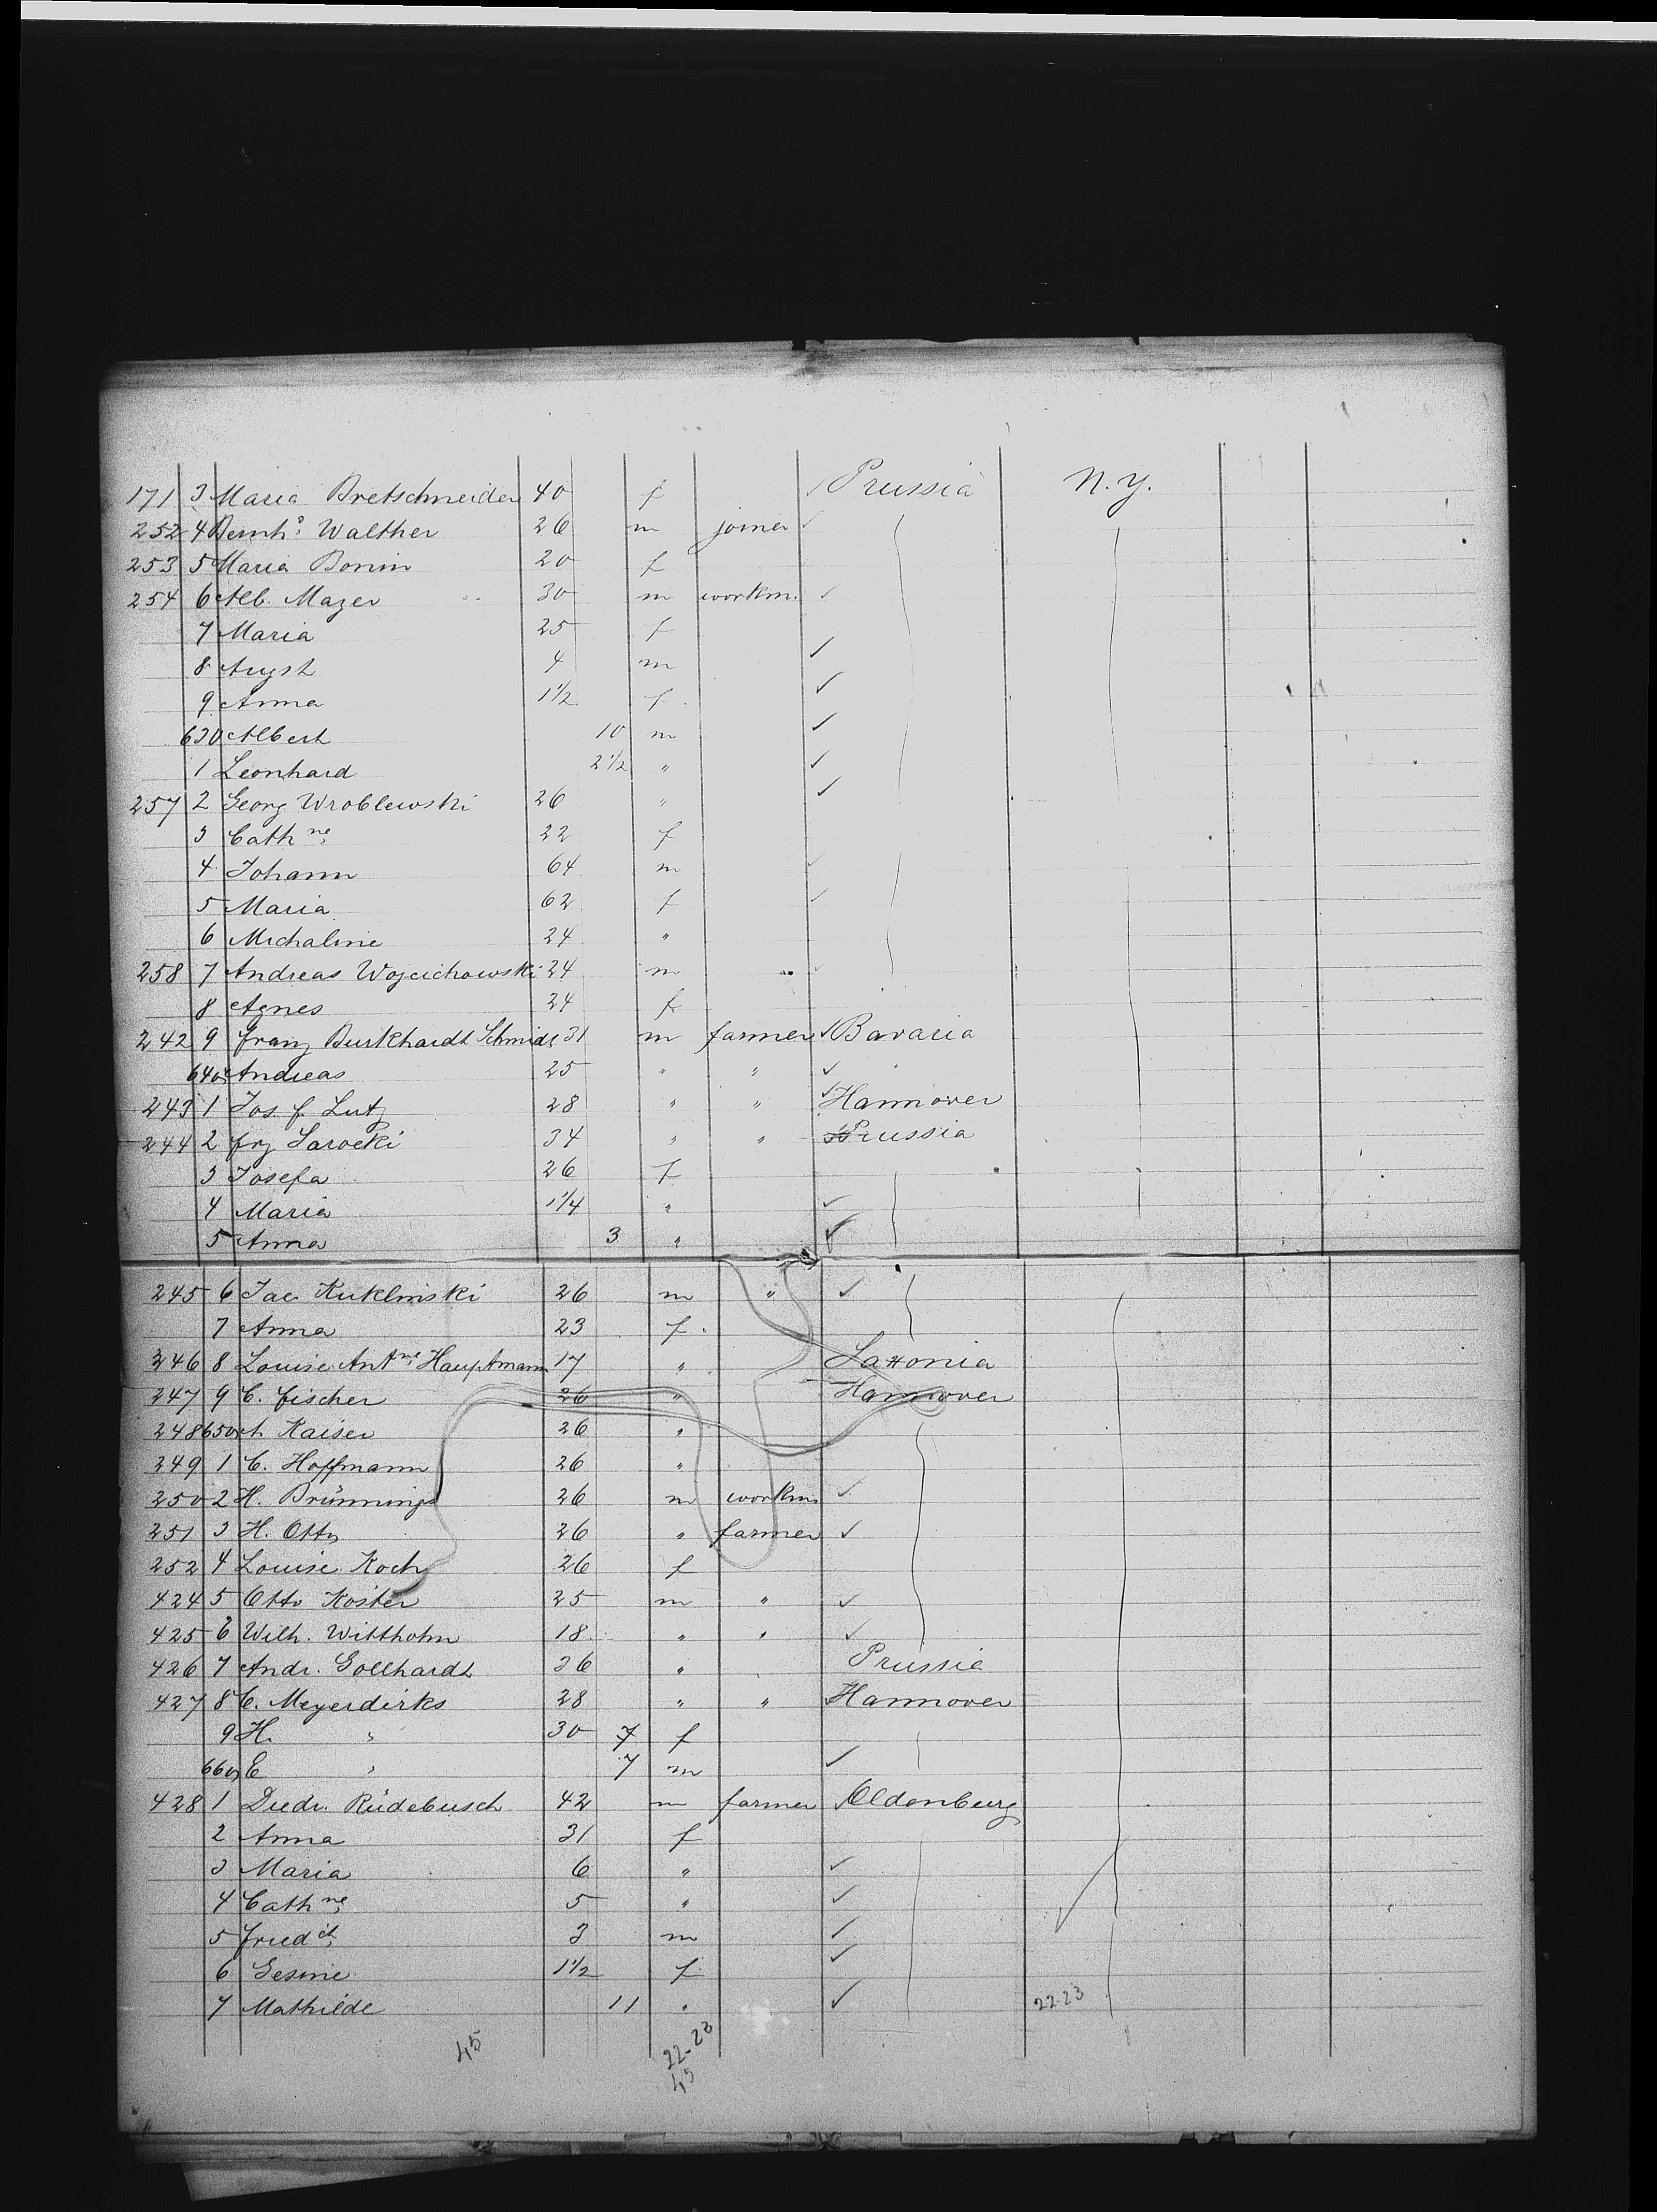 171 3 Maria Bretschneider 40 f Prussia N.Y.
252 4 Bernhd Walther 26 m joiner
253 5 Maria Bonin 20 f
254 6 Alb. Mazer 30 m workm.
7 Maria 25 f
8 Augst 4 m
9 Anna 1 1/2 f
630 Albert 10 m
1 Leonhard 2 1/2 "
257 2 Georg Wroblewski 26 "
3 Cathne 22 f
4 Johann 64 m
5 Maria 62 f
6 Michaline 24 "
258 7 Andreas Wojcichowski 24 m "
8 Agnes 24 f
242 9 Franz Burkhardt Schmidt 31 m farmer Bavaria
640 Andreas 25 " "
243 1 Jos f Lutz 28 " " Hannover
244 2 frz Sarocki 34 " " Prussia
3 Josefa 26 f
4 Maria 1 1/4 "
5 Anna 3 "
245 6 Jac Kuklinski 26 m "
7 Anna 23 f.
246 8 Louise Antne Hauptmann 17 " Saxonia
247 9 C. Fischer 26 " Hannover
248 650 A Kaiser 26 "
249 1 C. Hoffmann 26 "
250 2 H. Brünnings 26 m workm
251 3 H. Otto 26 " farmer
252 4 Louise Koch 26 f
424 5 Otto Köster 25 m "
425 6 Wilh. Witthohn 18 " "
426 7 Andr. Gollhardt 36 " Prussia
427 8 C. Meyerdirks 28 " " Hannover
9 H. " 30 7 f
660 E " 7 m
428 1 Diedr. Rüdebusch 42 m farmer Oldenburg
2 Anna 31 f
3 Maria 6 "
4 Cathne 5 "
5 Friedch 3 m
6 Gesine 1 1/2 f
7 Mathilde 11 " 22-23
45 22-23
45